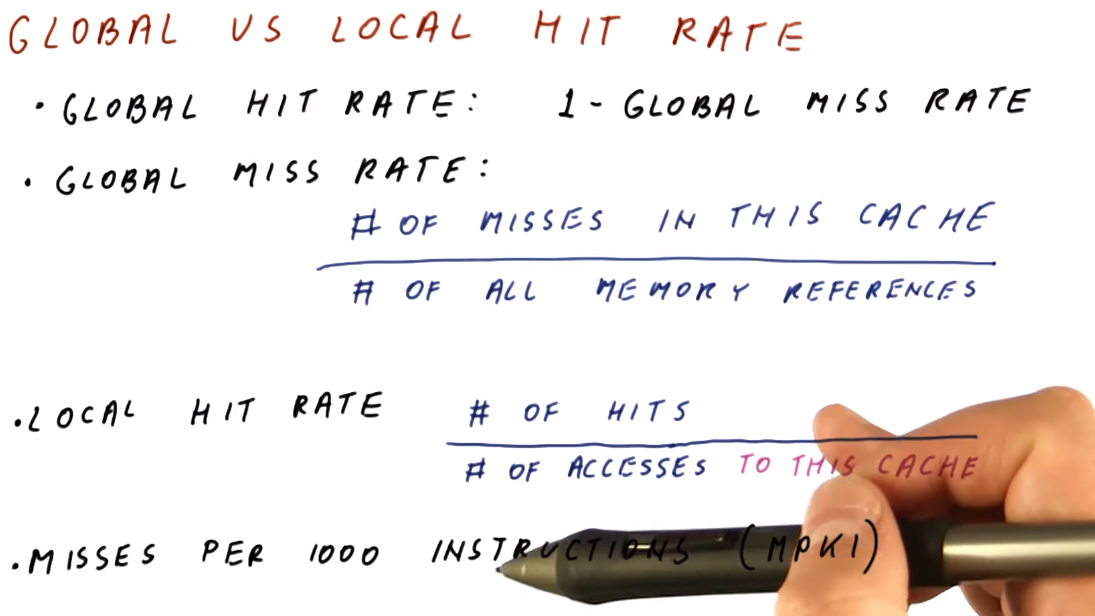 GLOBAL VS LOCAL HIT RATE
• GLOBAL HIT RATE: 1 - GLOBAL MISS RATE
• GLOBAL MISS RATE:
# OF MISSES IN THIS CACHE
# OF ALL MEMORY REFERENCES
• LOCAL HIT RATE # OF HITS
# OF ACCESSES TO THIS CACHE
• MISSES PER 1000 INSTRUCTIONS (MPKI)